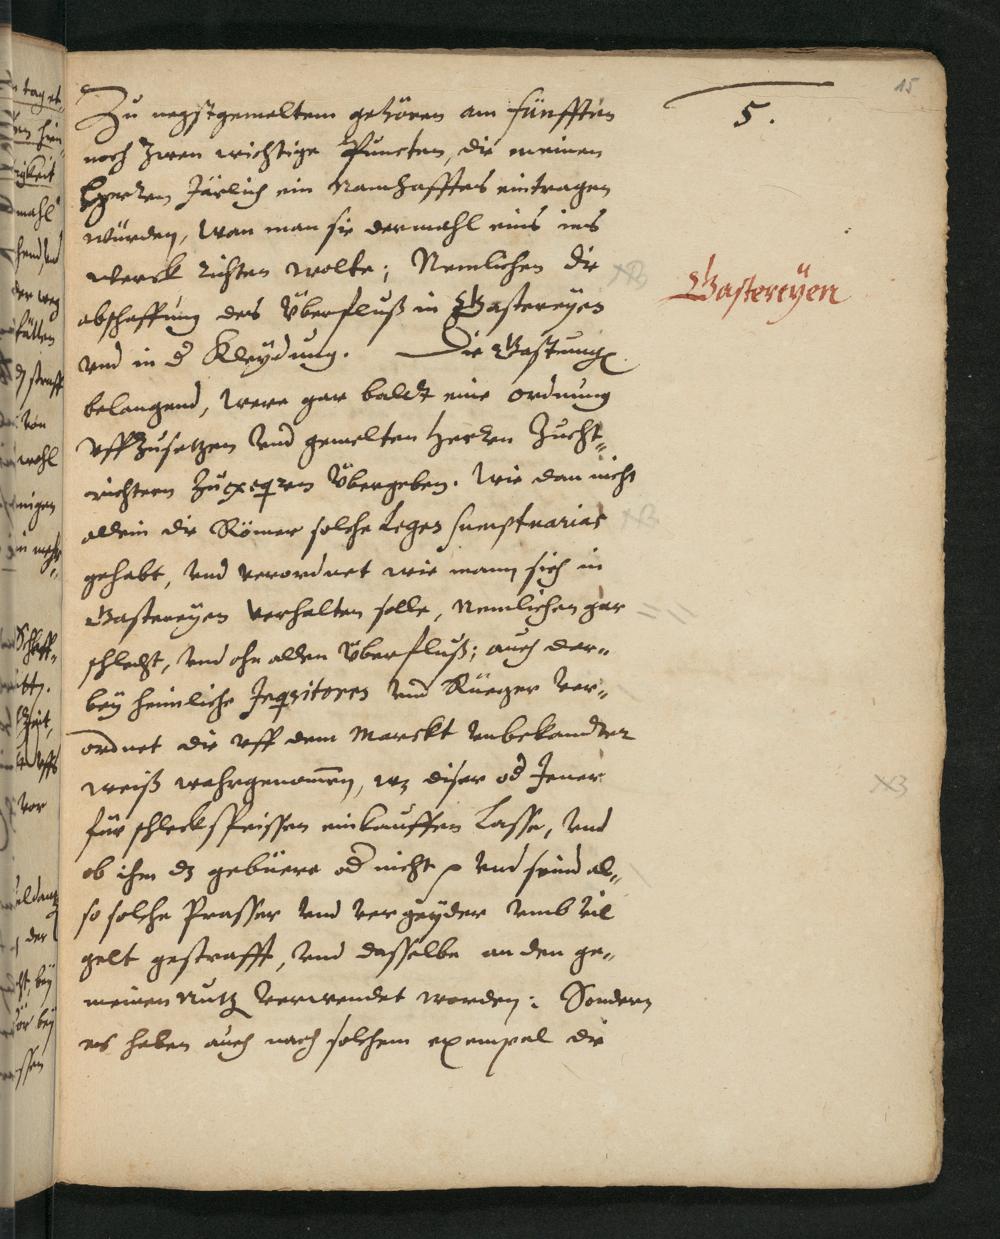 15
5.
Zu negstgemeltem gehören am fünfften
noch zwen wichtige Puncten, die meinen
Herren Järlich ein namhafftes eintragen
würden, wan man sie dermahl eins ins
werck richten wolte; Nemlichen die
abschaffung des Überfluß in Gastereyen
Gastereÿen
vnd in d Kleÿdung. Die Gastung
belangend, were gar baldt eine ordnung
vffzusetzen vnd gemelten Herren Zucht-
richtern zu übergeben. Wie dan nicht
allein die Römer solche Leges sumptuarias
gehabt, vnd verordnet wie mann sich in
Gastereyen verhalten solle, Nemlichen gar
schlecht, vnd ohn allen Überfluß; auch dar-
beÿ heimliche Inqsitores vnd Rüeger ver-
ordnet die vff dem Marckt vnbekandter
weiß wahrgenomen, wz diser od Jener
für schleckspeissen einkauffen Lasse, vnd
ob ihm dz gebüere od nicht vnd seind al-
so solche Prasser vnd vergeÿder vmb vil
gelt gestrafft, vnd dasselbe an den ge-
meinen Nutz verwendet worden: Sondern
es haben auch nach solchem exempel die